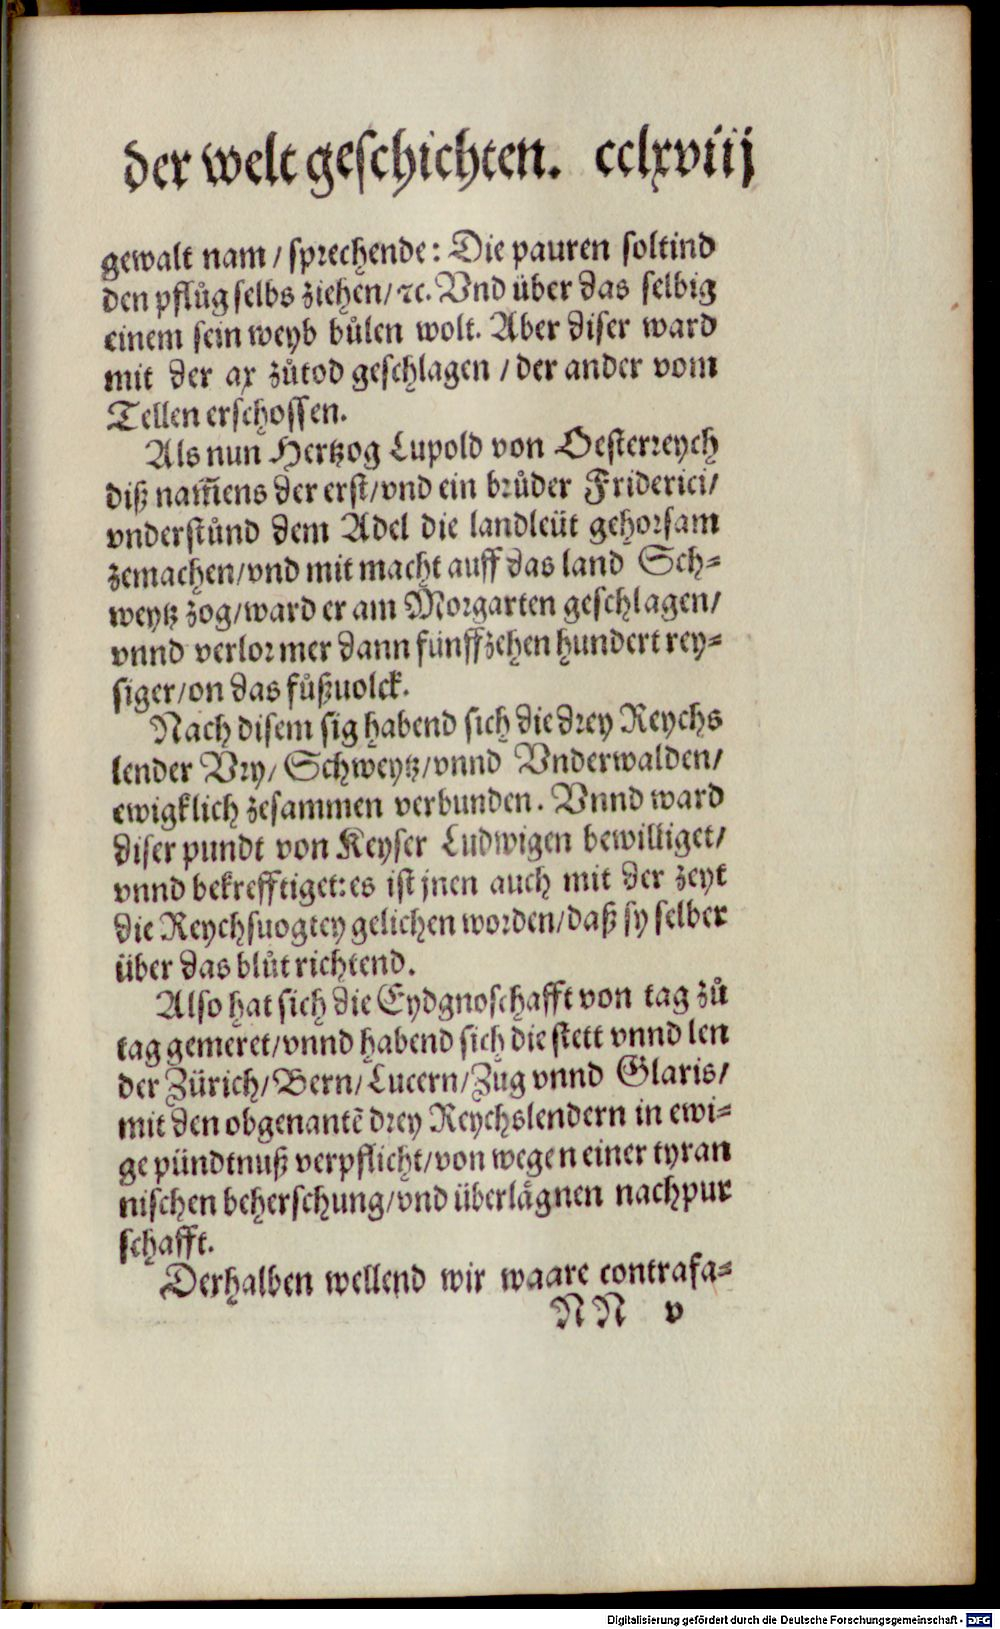 der welt geschichten. cclxviij
gewalt nam / sprechende: Die pauren soltind
den pflůg selbs ziehen/ ⁊c. Vnd über das selbig
einem sein weyb bůlen wolt. Aber diser ward
mit der ax zůtod geschlagen / der ander vom
Tellen erschossen.
Als nun Hertzog Lupold von Oesterreych
diß nam̃ens der erst/vnd ein brůder Friderici/
vnderstůnd dem Adel die landleüt gehorsam
zemachen/vnd mit macht auff das land Sch⸗
weytz zog/ward er am Morgarten geschlagen/
vnnd verlor mer dann fünffzehen hundert rey⸗
siger/on das fůßuolck.
Nach disem sig habend sich die drey Reychs
lender Vry/ Schweytz/vnnd Vnderwalden/
ewigklich zesammen verbunden. Vnnd ward
diser pundt von Keyser Ludwigen bewilliget/
vnnd bekrefftiget: es ist jnen auch mit der zeyt
die Reychsuogtey gelichen worden/daß sy selber
über das blůt richtend.
Also hat sich die Eydgnoschafft von tag zů
tag gemeret/vnnd habend sich die stett vnnd len
der Zürich/Bern/Lucern/Zug vnnd Glaris/
mit den obgenantẽ drey Reychslendern in ewi⸗
ge pündtnuß verpflicht/von wegen einer tyran
nischen beherschung/vnd überlägnen nachpur
schafft.
Derhalben wellend wir waare contrafa⸗
NN v
Digitalisierung gefördert durch die Deutsche Forschungsgemeinschaft - DFG